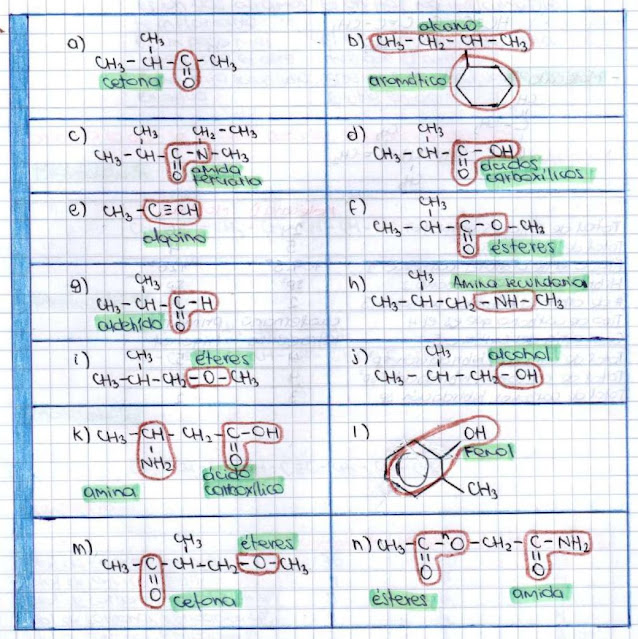 a) CH₃
CH₃ - CH - C - CH₃
O
cetona
b) alcano
CH₃ - CH₂ - CH - CH₃
aromático
c) CH₃ CH₂ - CH₃
CH₃ - CH - C - N - CH₃
O
amida
terciaria
d) CH₃
CH₃ - CH - C - OH
O
ácidos
carboxílicos
e) CH₃ - C ≡ CH
alquino
f) CH₃
CH₃ - CH - C - O - CH₃
O
ésteres
g) CH₃
CH₃ - CH - C - H
O
aldehído
h) CH₃ Amina secundaria
CH₃ - CH - CH₂ - NH - CH₃
i) CH₃ éteres
CH₃ - CH - CH₂ - O - CH₃
j) CH₃ alcohol
CH₃ - CH - CH₂ - OH
k) CH₃ - CH - CH₂ - C - OH
NH₂ O
amina
ácido
carboxílico
l) OH
Fenol
CH₃
m) CH₃ éteres
CH₃ - C - CH - CH₂ - O - CH₃
O
cetona
n) CH₃ - C - O - CH₂ - C - NH₂
O O
ésteres amida